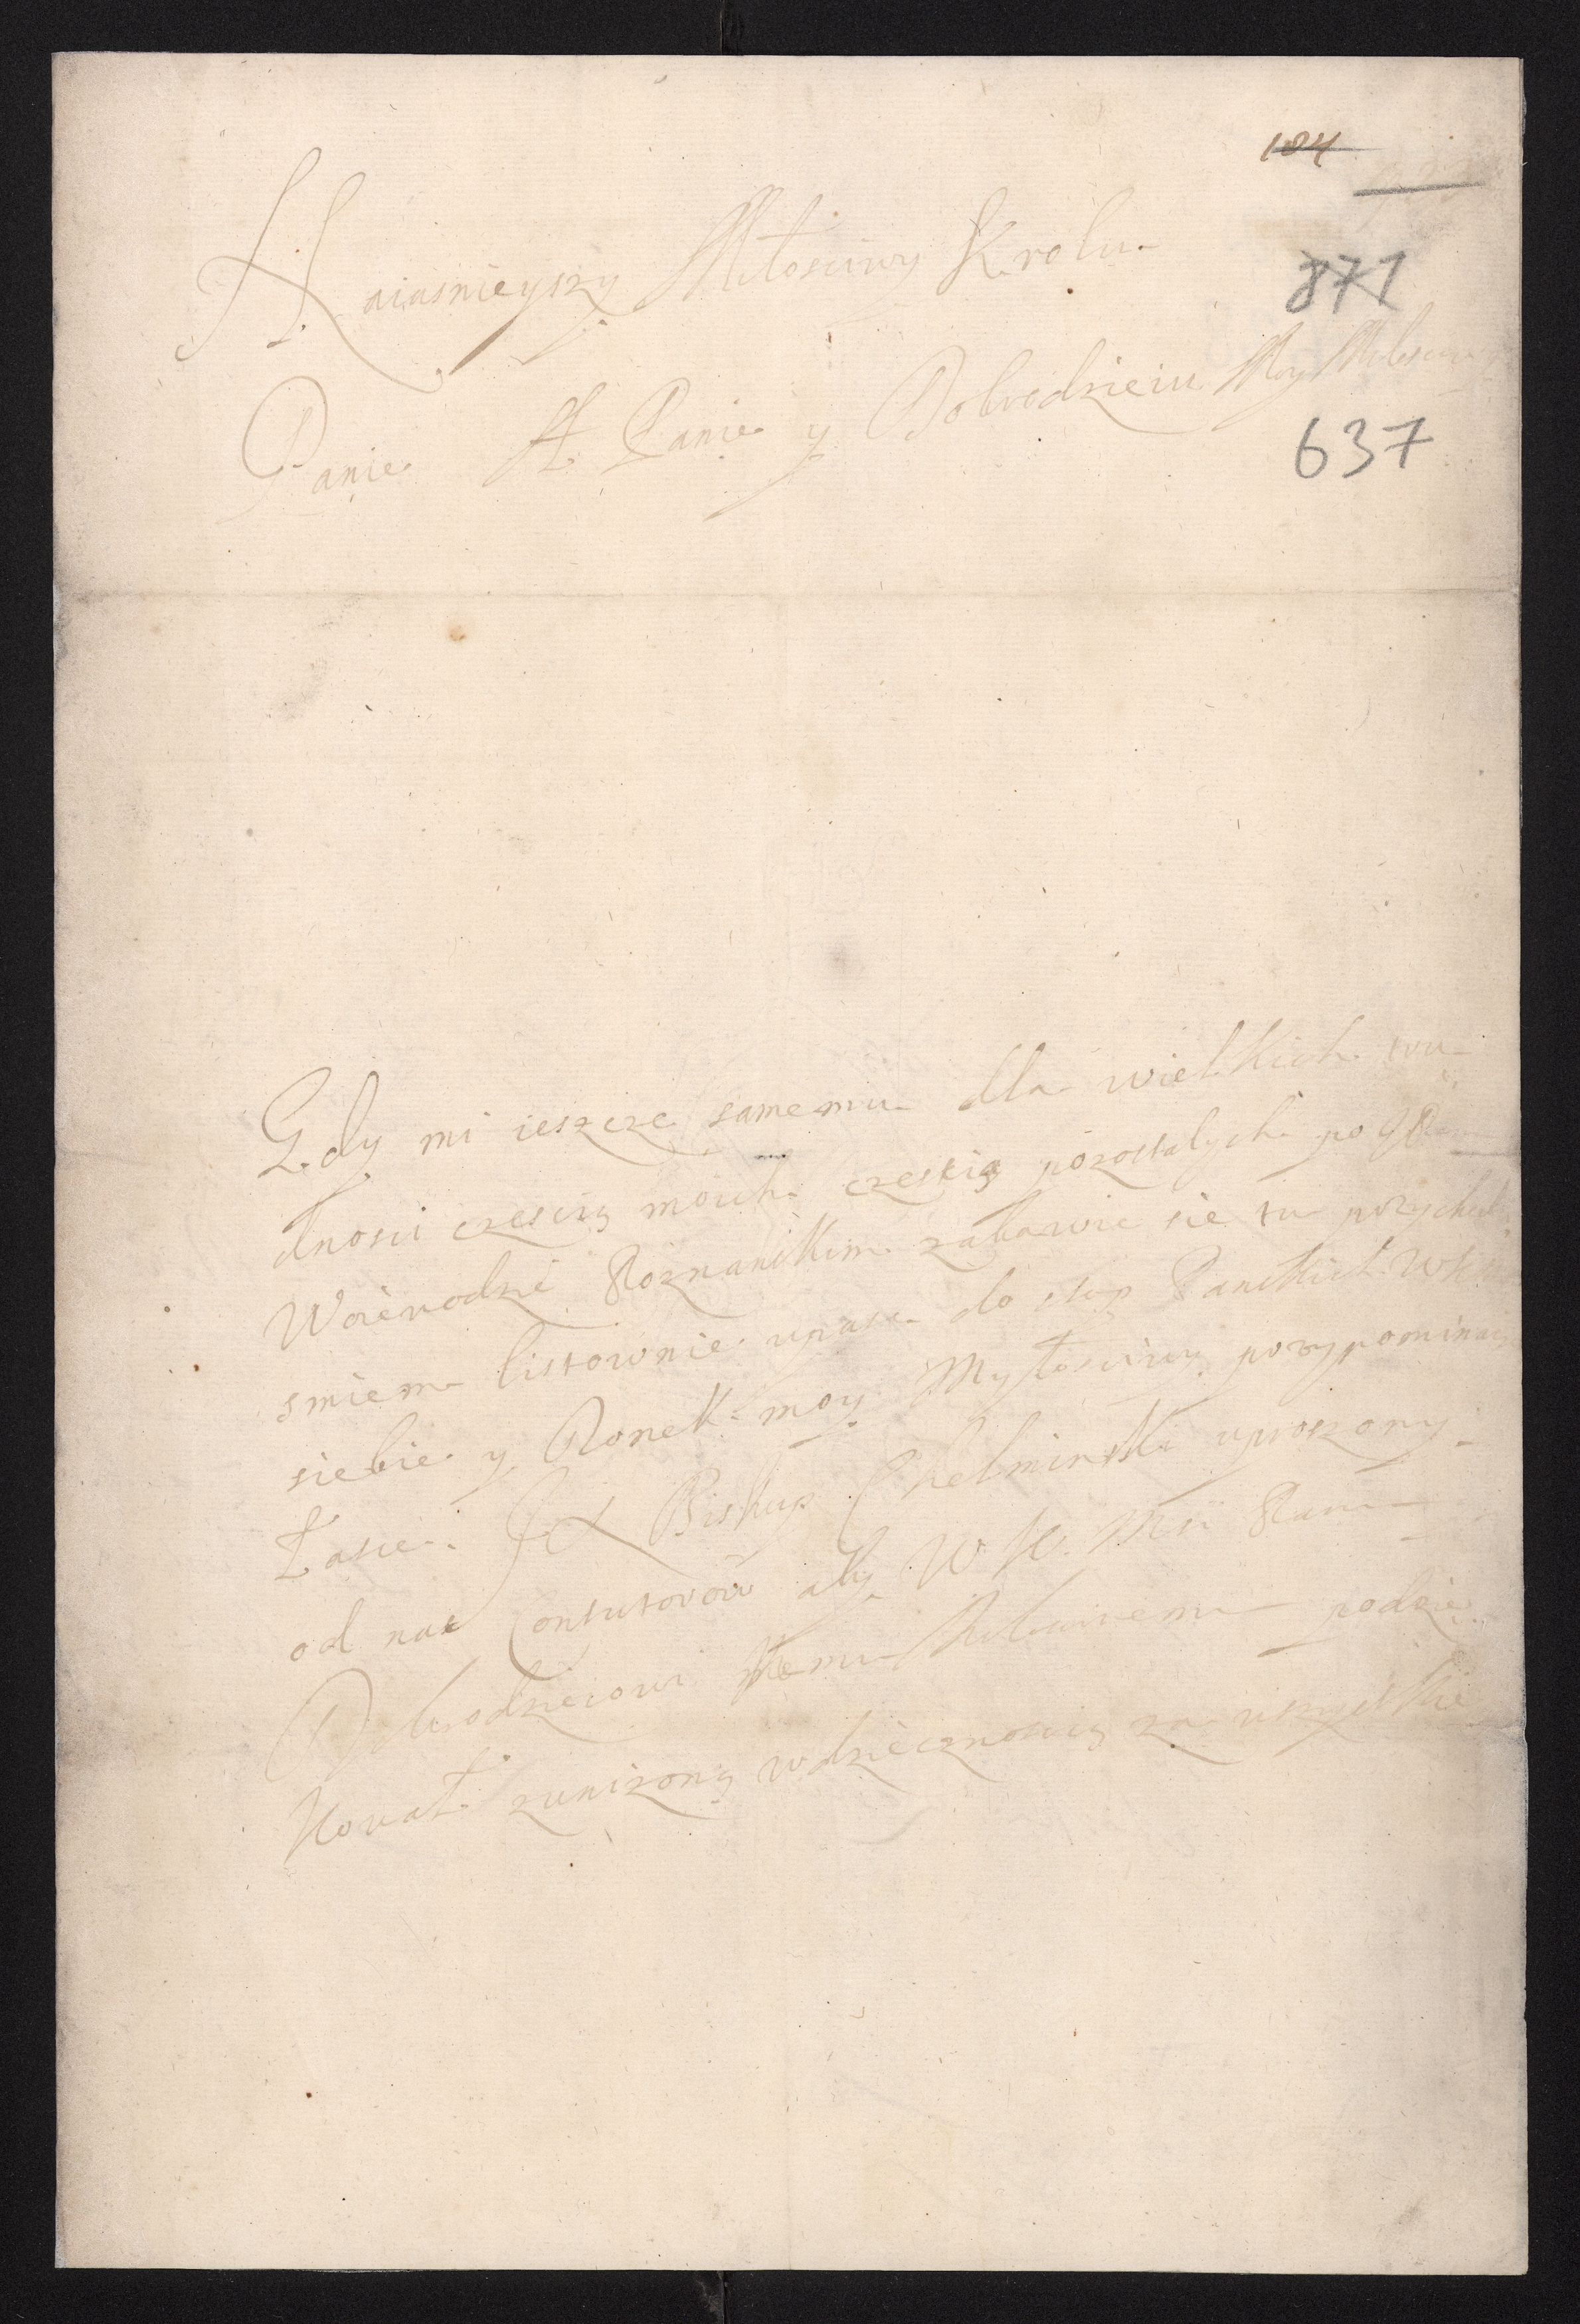 104
871
Naiasnieyszy Miłosciwy Krolu
Panie A Panie y Dobrodzieiu Moy Miłosciwy
637
Gdy mi ieszcze samemu dla wielkich tru
dnosci czescią moich czescią pozostałych po
Woiewodzie Poznanskim zabawic się tu przychodzi
smiem listownie upasc do stop Panskich WK
siebie y Domek moy Myłosciwy przypominaiąc
Łasce. JX Biskup Chelminski uproszony
od nas Contutorow aby W K Msci Panu
Dobrodzieiowi Memu Miłosciwemu podzię
kował zunizoną wdzięcznoscią za wszystkie